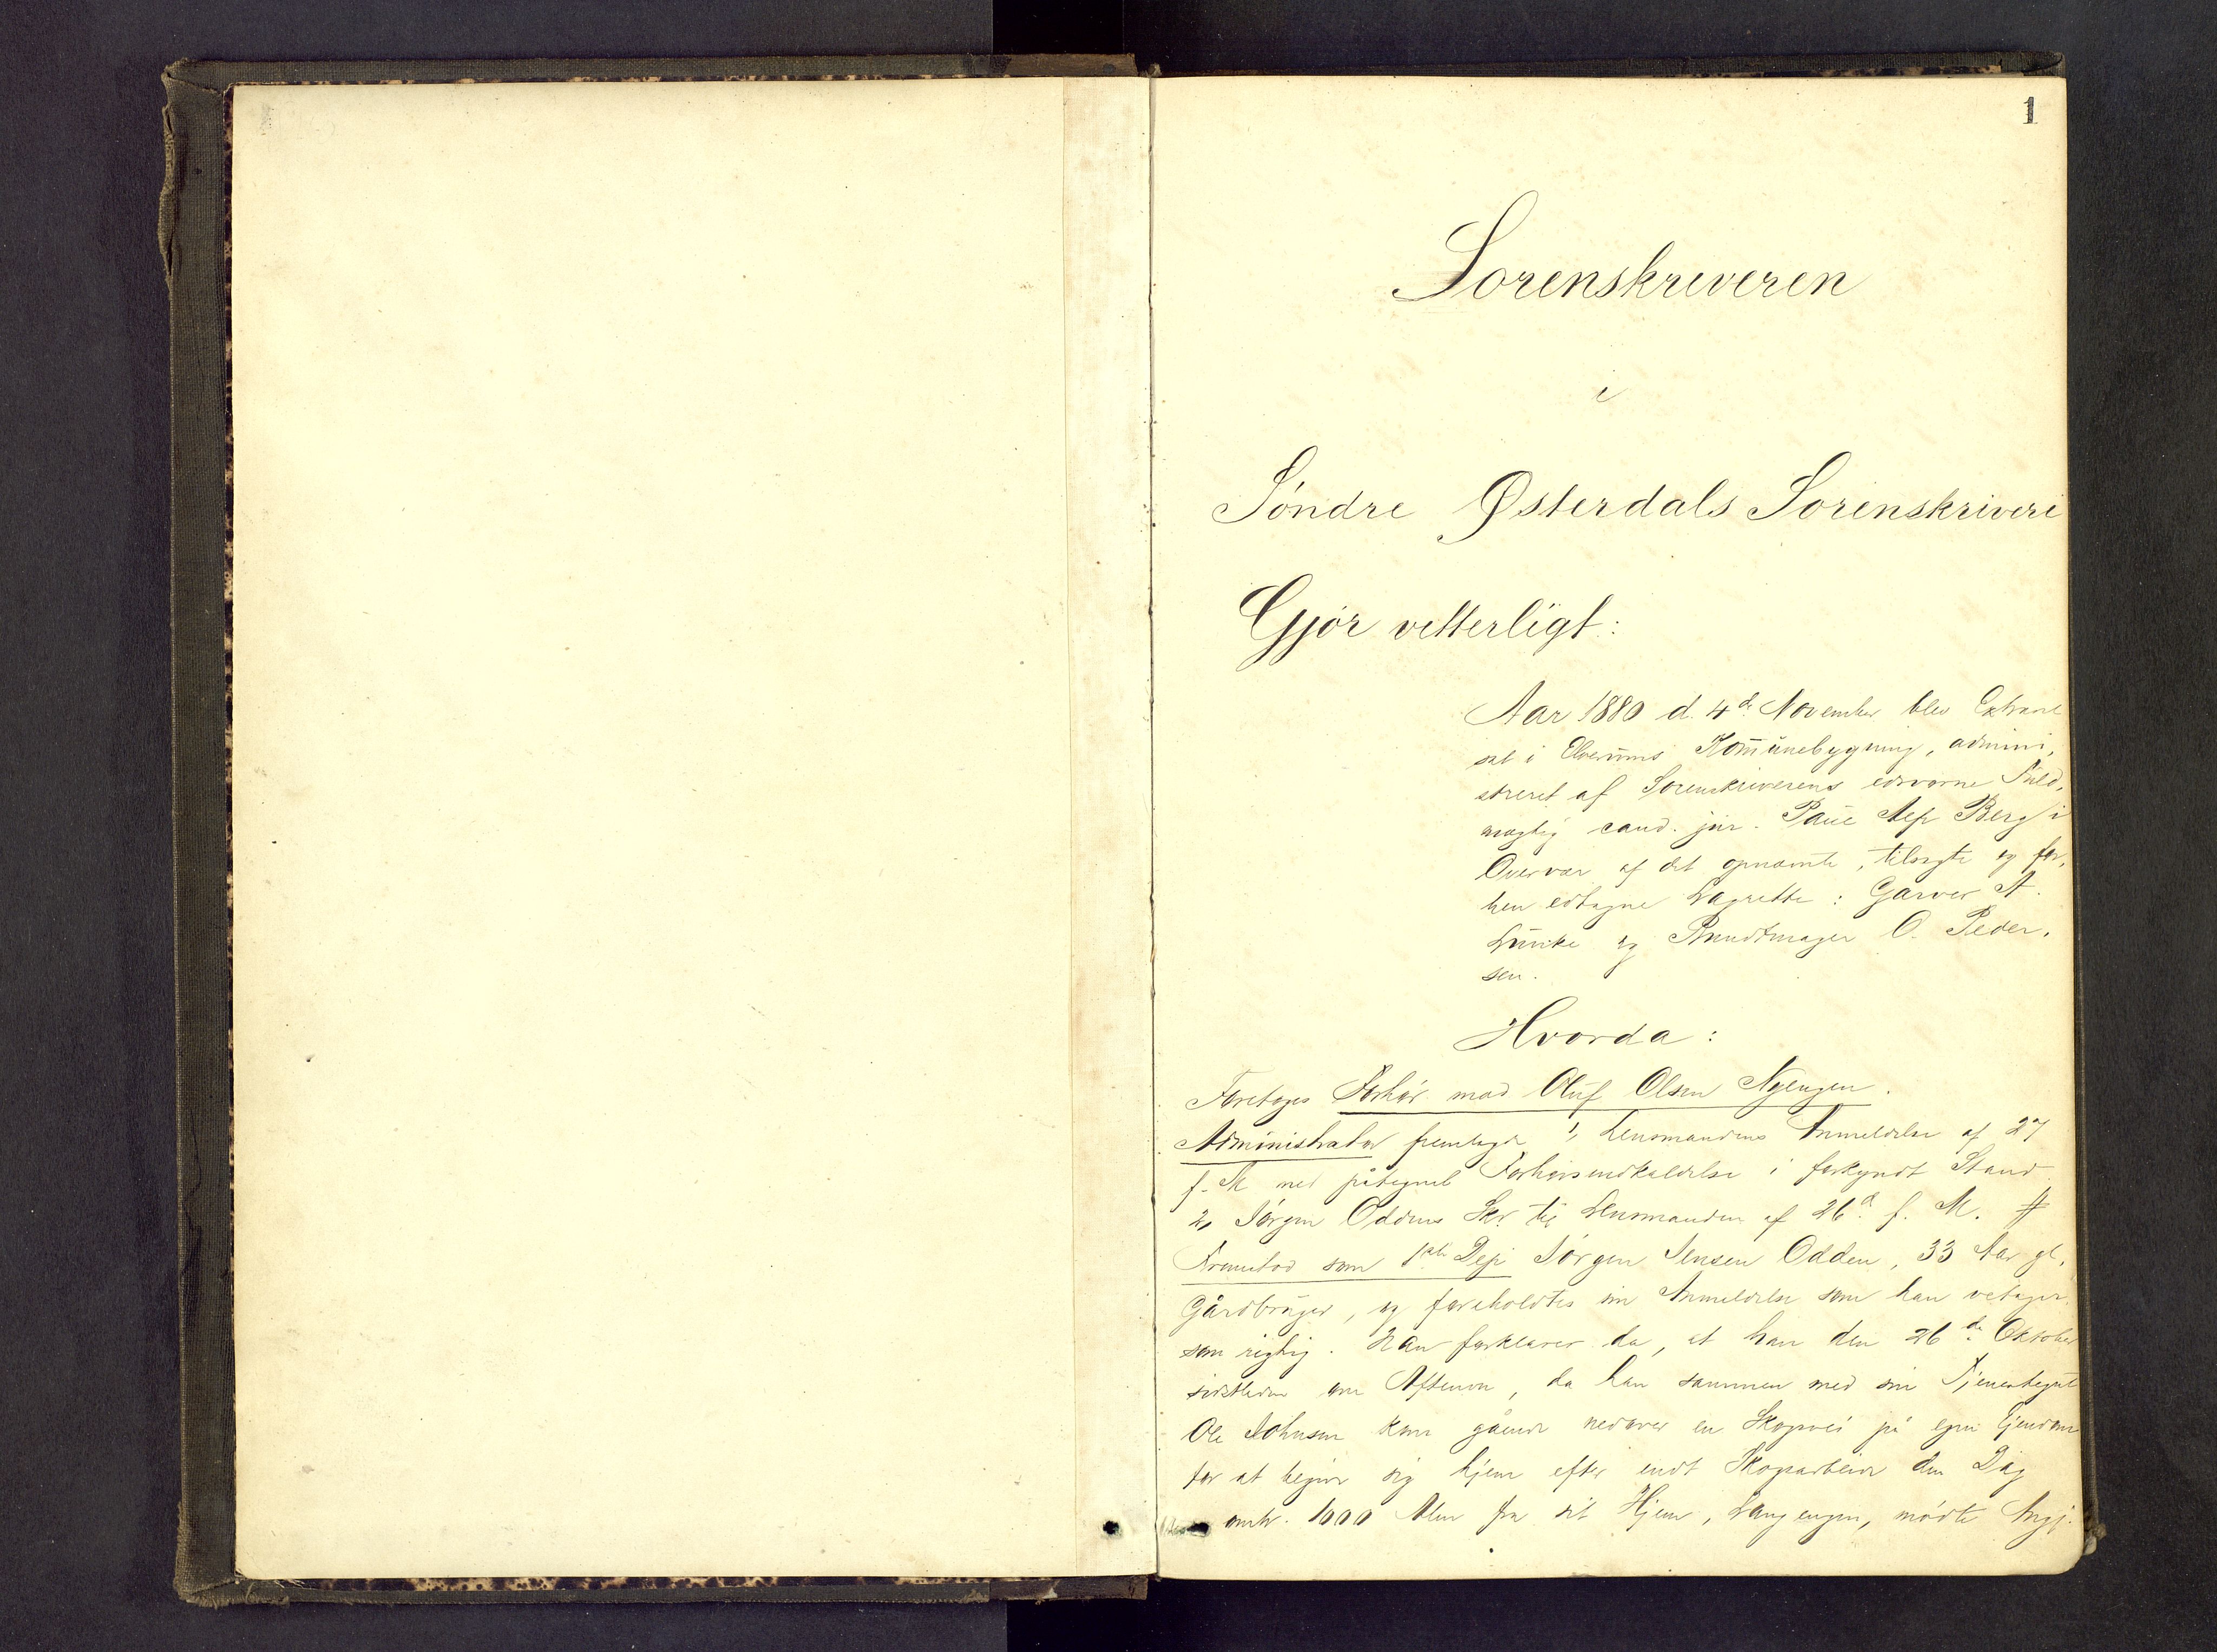 1
Sorenskreveren
i
Söndre Østerdals Sorenskriveri
Gjör vetterligt:
Aar 1880 d. 4de November blev Extraret
sat i Elverums Kommunebygning, admini-
streret af Sorenskriverens edsvorne Fuld-
mægtig cand. jur. Paul Berg i
Overvær af det opnævnte, tilsagte og for-
hen edtagne Lagrette: Garver A.
Lunke og Bundtmager O. Peder-
sen.
Hvorda:
Foretoges Forhör mod Oluf Olsen Nyengen.
Administrator fremlagde 1, Lensmandens Anmeldelse af 27
f. M med påtegnet Forhörsindkaldelse i forkyndt Stand
2, Jörgen Oddens Skr. til Lensmanden af 26d f. M.
Fremstod som 1ste Dep Jörgen Jensen Odden, 33 Aar gl,
Gårdbruger, og foreholdtes sin Anmeldelse som han vedtager
som rigtig. Han forklarer da, at han den 26de Oktober
sidstleden om Aftenen, da han sammen med sin Tjenestegut
Ole Johnsen kom gående nedover en Skogsvei på egen Eiendom
for at begive sig hjem efter endt Skogsarbeide den Dag
omtr. 1000 Alen fra sit Hjem, Langengen, mödte Angj.